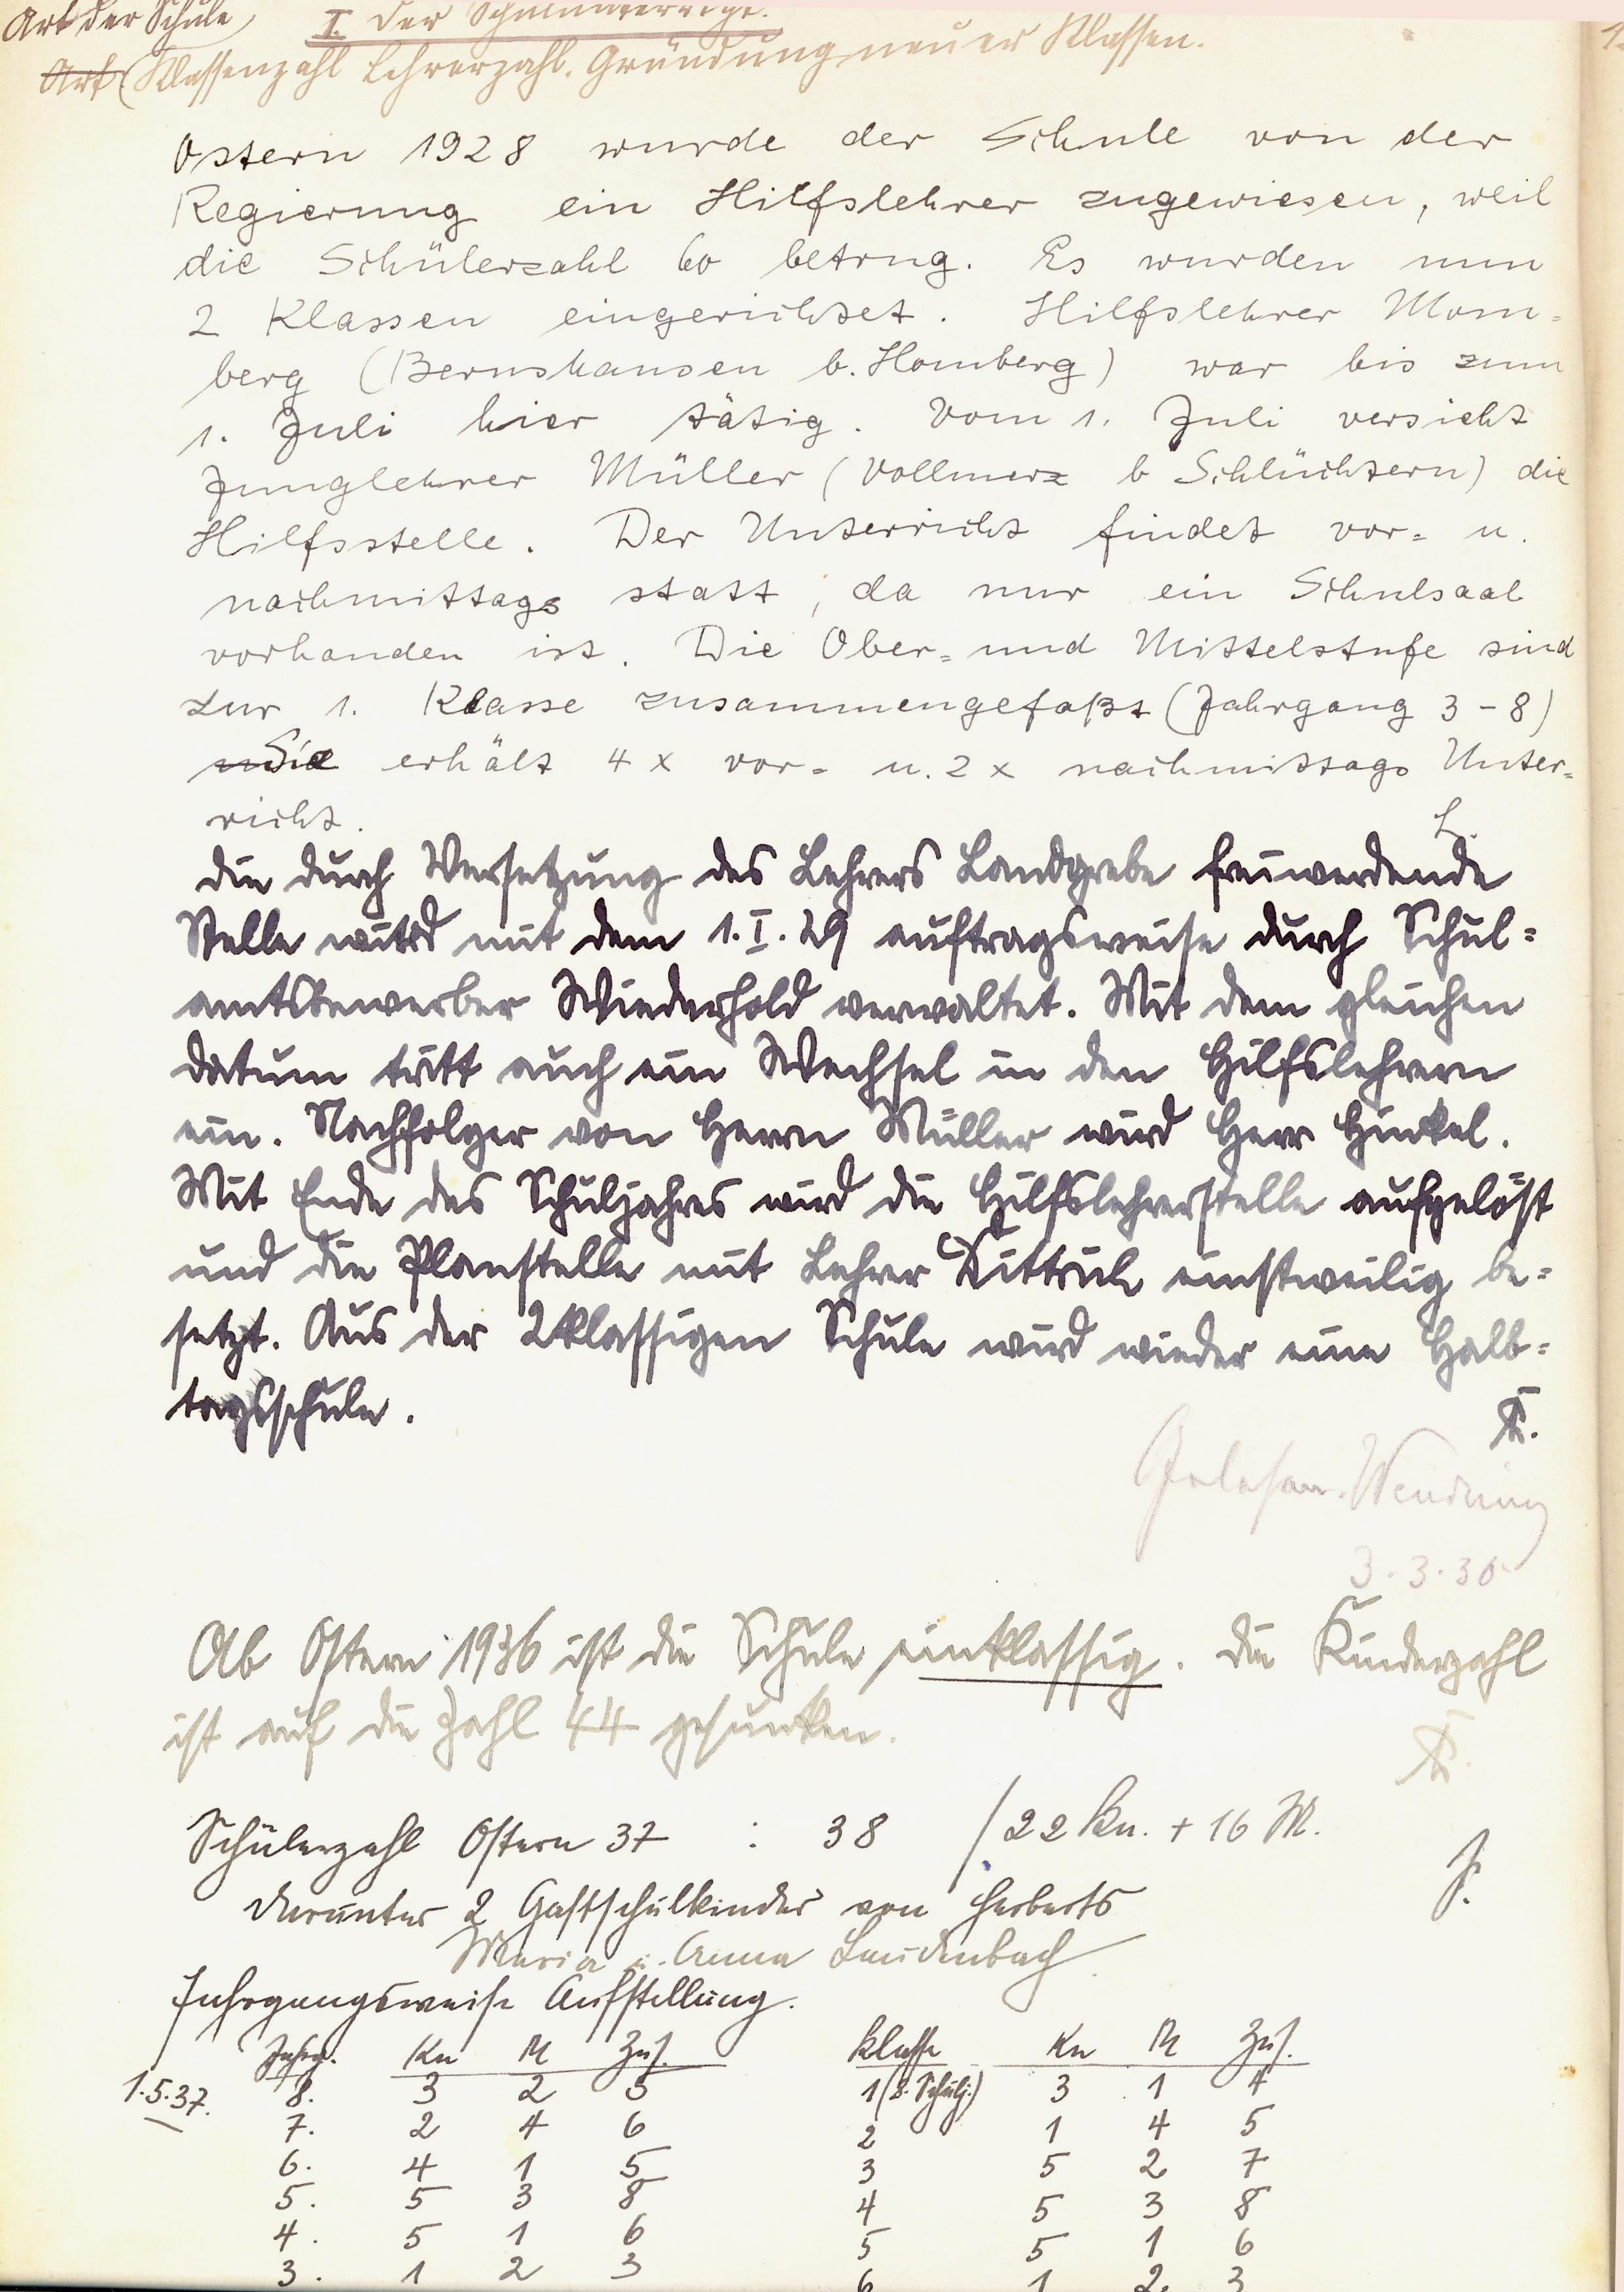 Art der Schule
I. Der
Art (Klassenzahl Lehrerzahl. Gründung neuer Klassen.
Ostern 1928 wurde der Schule von der
Regierung ein Hilfslehrer zugewiesen, weil
die Schülerzahl 60 betrug. Es wurden nun
2 Klassen eingerichtet. Hilfslehrer Mom=
berg (Bernshausen b. Homberg) war bis zum
1. Juli hier tätig. Vom 1. Juli versieht
Junglehrer Müller (Vollmerz b Schlüchtern) die
Hilfsstelle. Der Unterricht findet vor= u.
nachmittags statt, da nur ein Schulsaal
vorhanden ist. Die Ober= und Mittelstufe sind
zur 1. Klasse zusammengefaßt (Jahrgang 3 - 8)
Sie erhält 4 x vor= u. 2 x nachmittags Unter=
richt.
L.
Die durch Versetzung des Lehrers Landgrebe freiwerdende
Stelle wird mit dem 1. I. 29 auftragsweise durch Schul=
amtsbewerber Wiederhold verwaltet. Mit dem gleichen
Datum tritt auch ein Wechsel in den Hilfslehrern
ein. Nachfolger von Herrn Müller wird Herr Hinkel.
Mit Ende des Schuljahres wird die Hilfslehrerstelle aufgelöst
und die Planstelle mit Lehrer Dittrich einstweilig be=
setzt. Aus der 2klassigen Schule wird wieder eine Halb=
tagsschule.
Gelesen.
3. 3. 30
Ab Ostern 1936 ist die Schule einklassig. Die Kinderzahl
ist auf die Zahl 44 gesunken.
Schülerzahl Ostern 37 : 38 / 22 Kn. + 16 M.
J.
Darunter 2 Gastschulkinder von Herberts
Maria u. Anna Laudenbach
Jahrgangsweise Aufstellung.
Jahrg. Kn M Zus. Klasse Kn M Zus.
1.5.37. 8. 3 2 5 1 (8. Schulj.) 3 1 4
7. 2 4 6 2 1 4 5
6. 4 1 5 3 5 2 7
5. 5 3 8 4 5 3 8
4. 5 1 6 5 5 1 6
3. 1 2 3 6 1 2 3